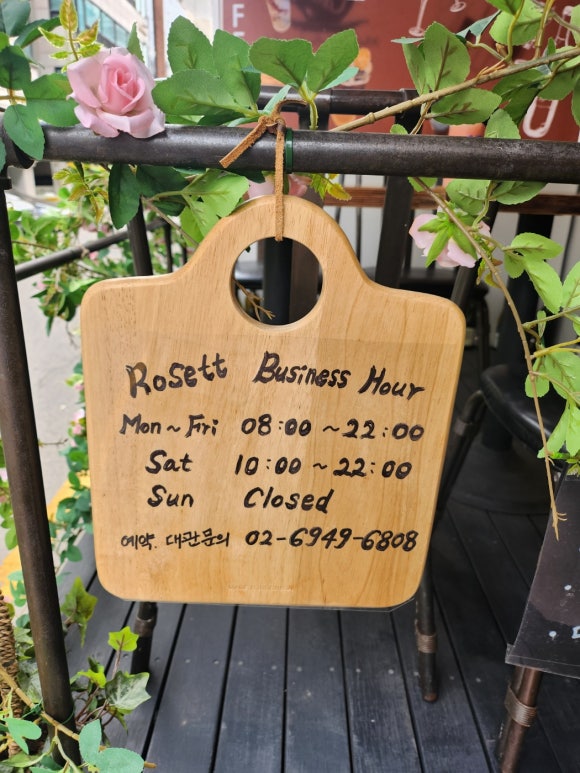 Rosett Business Hour
Mon ~ Fri 08:00 ~ 22:00
Sat 10:00 ~ 22:00
Sun Closed
예약. 대관문의 02-6949-6808